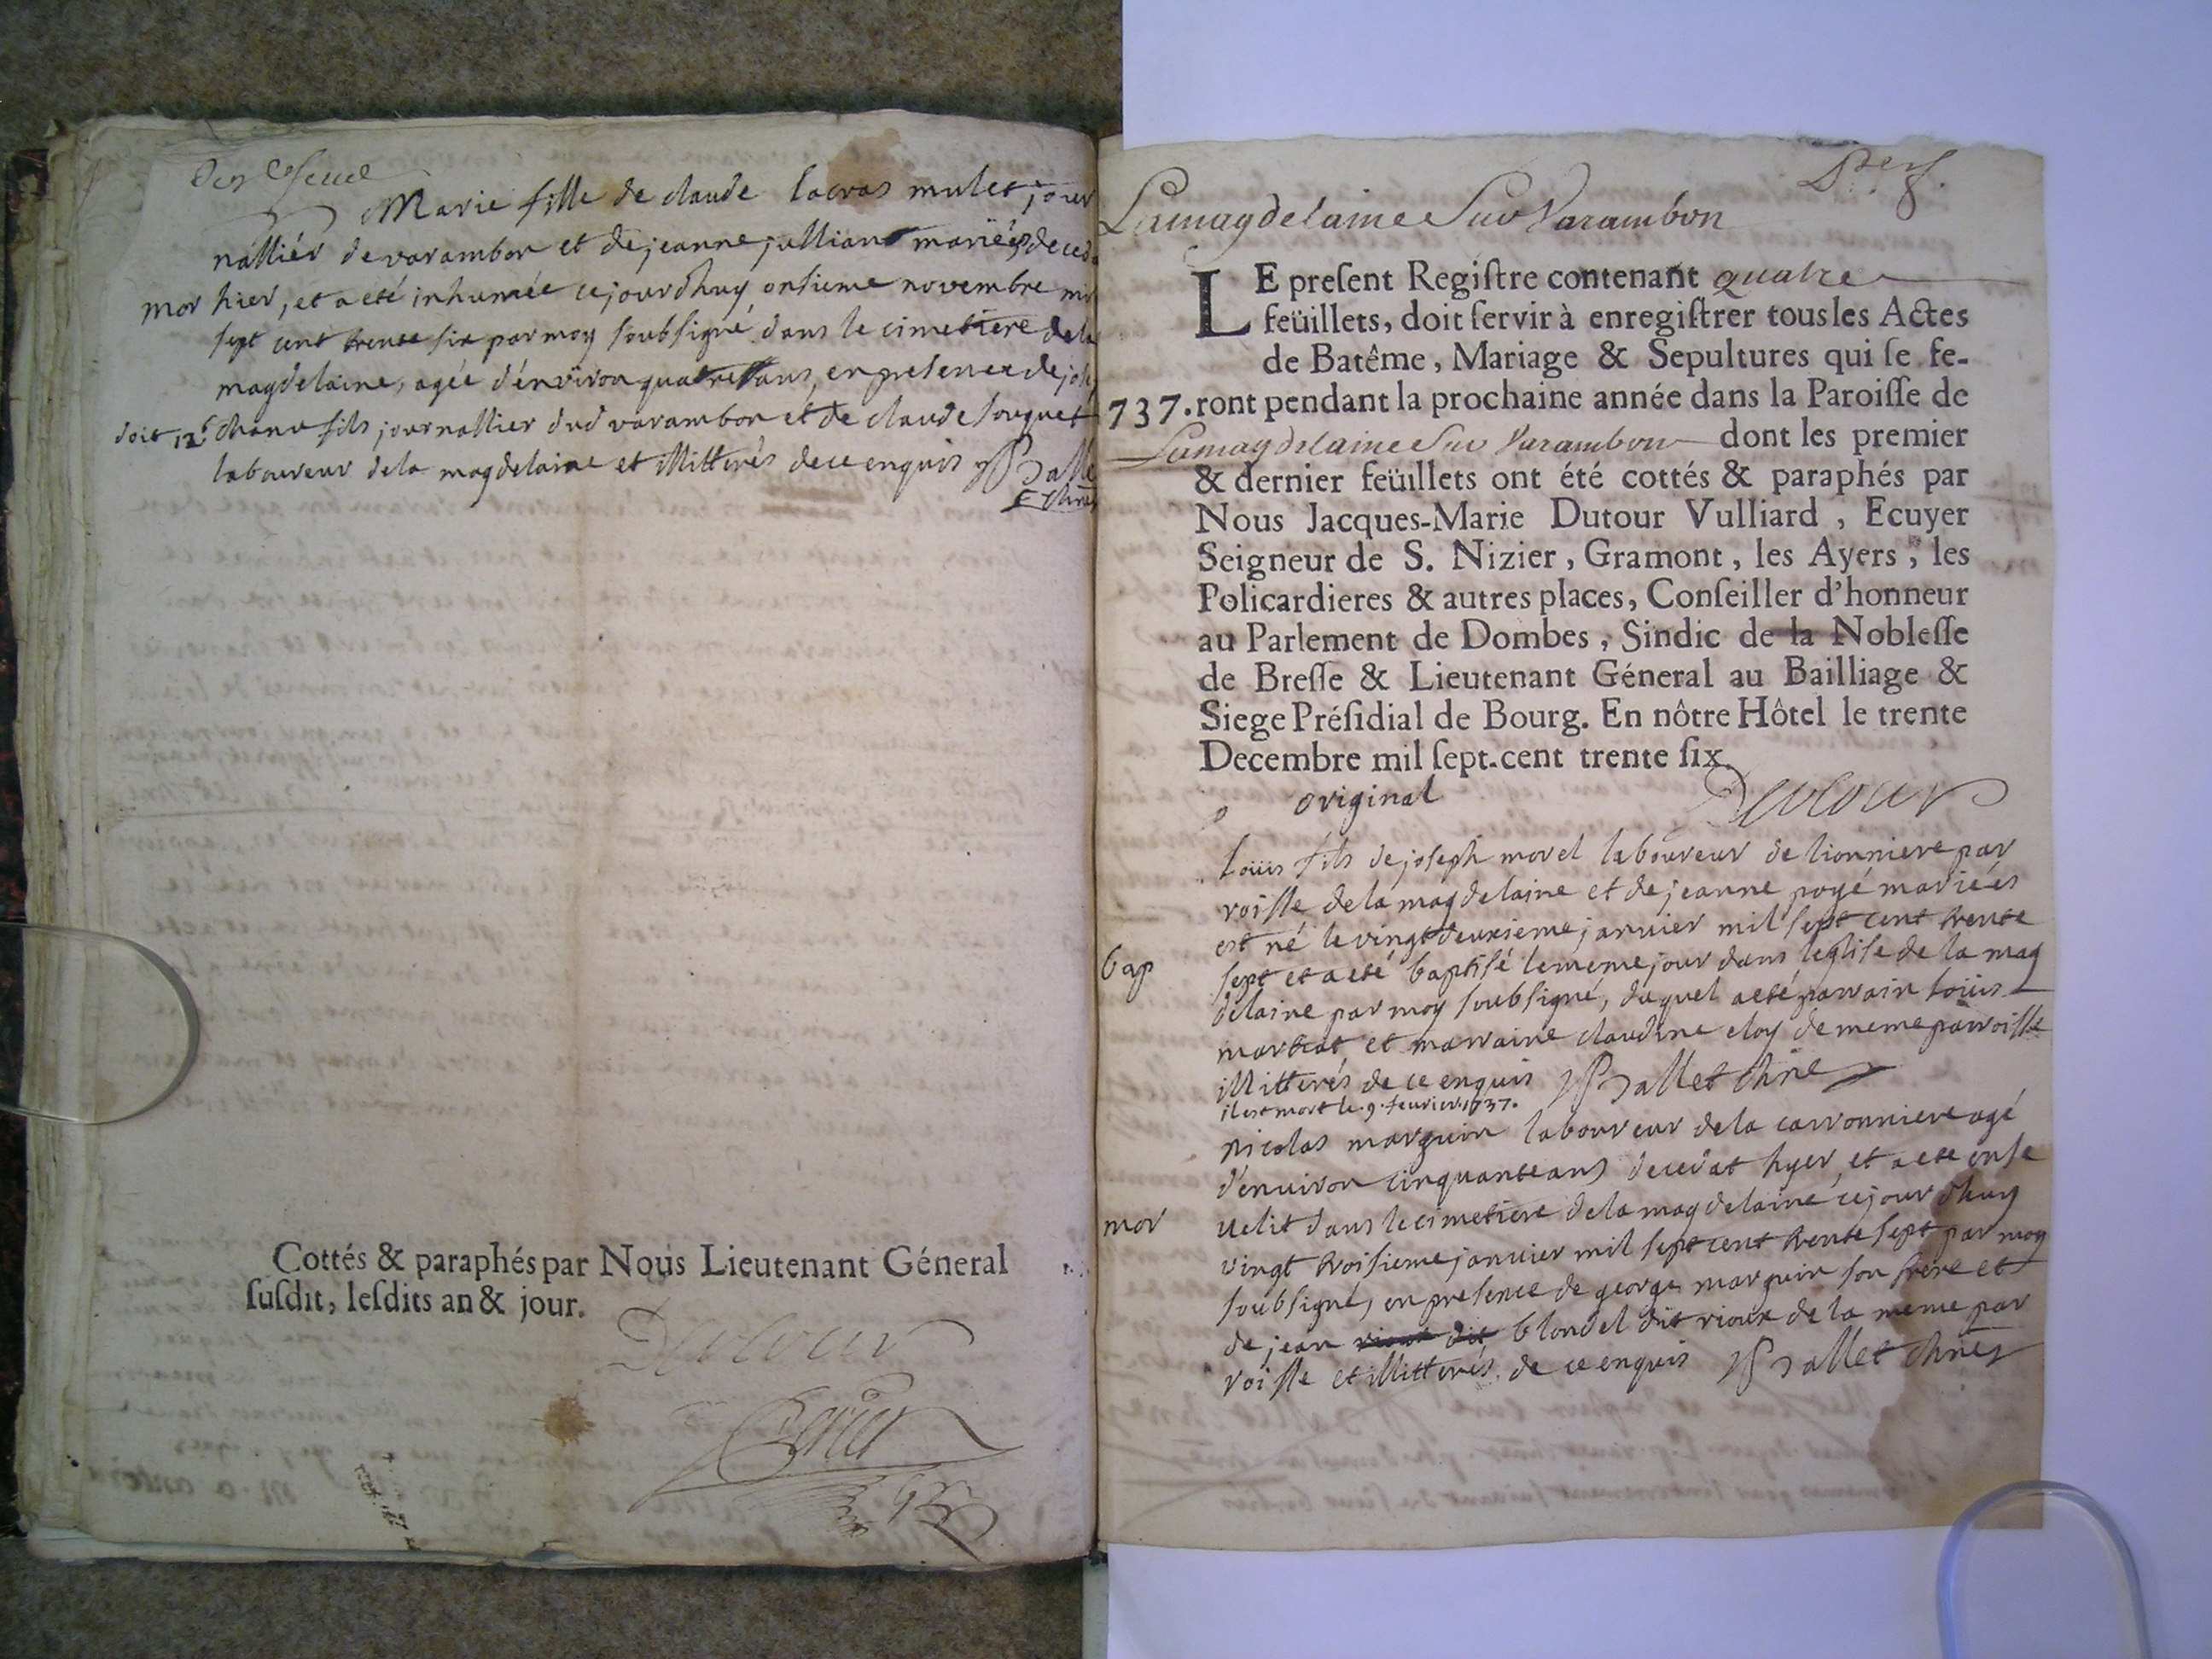 Marie fille de claude lacras mulet jour
nallier de varambon et de jeanne jullian mariées deced
mor hier, et a eté inhumée cejourdhuy onsieme novembre mi
sept cent trente six par moy soubsigné dans le cimetiere de la
magdelaine, agée d'environ quatre ans, en presence de jos
doit 12s chanu fils journallier dud varambon et de claude
laboureur de la magdelaine et illitterés de ce enquis Ballet
Cottés & paraphés par Nous Lieutenant Géneral
ſuſdit, leſdits an & jour.
Dutour
Lamagdelaine Sur Varambon
LE preſent Regiſtre contenant quatre
feüillets, doit ſervir à enregiſtrer tous les Actes
de Batême, Mariage & Sepultures qui ſe fe-
737. ront pendant la prochaine année dans la Paroiſſe de
Lamagdelaine Sur Varambon dont les premier
& dernier feüillets ont été cottés & paraphés par
Nous Jacques-Marie Dutour Vulliard, Ecuyer
Seigneur de S. Nizier, Gramont, les Ayers, les
Policardieres & autres places, Conſeiller d'honneur
au Parlement de Dombes, Sindic de la Nobleſſe
de Breſſe & Lieutenant Géneral au Bailliage &
Siege Préſidial de Bourg. En nôtre Hôtel le trente
Decembre mil ſept-cent trente ſix.
original Dutour
Loüis fils de joseph morel laboureur de lionniere par
roisse de la magdelaine et de jeanne pogé mariées
est né le vingt deuxieme janvier mil sept cent trente
bap sept et a eté baptisé le meme jour dans leglise de la mag
delaine par moy soubsigné, duquel a eté parrain loüis
marteat et marraine claudine eloy de meme parroisse
illitterés de ce enquis Ballet
il est mort le 9. fevrier 1737.
nicolas marguin laboureur de la carronniere agé
d'environ cinquante ans decedat hyer et a eté ense
mor velit dans le cimetiere de la magdelaine cejourdhuy
vingt troisieme janvier mil sept cent trente sept par moy
soubsigné, en presence de george marguin son frere et
de jean blondel dit rioux de la meme par
roisse et illitterés de ce enquis Ballet